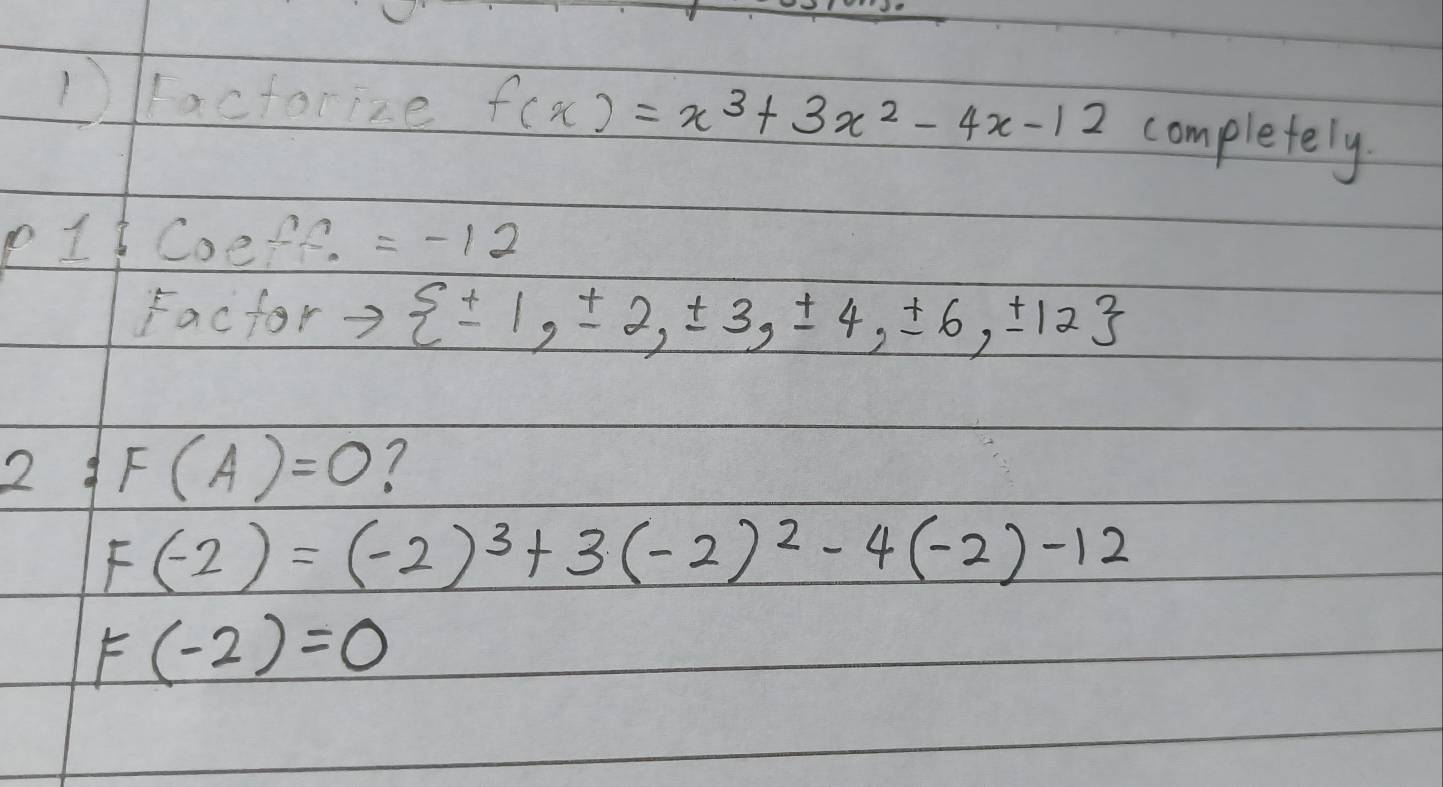 1) Factorize f(x) = x³ + 3x² - 4x - 12 completely.
p 1 : Coeff. = -12
Factor → {± 1, ± 2, ± 3, ± 4, ± 6, ± 12}
2 : F(A) = 0?
F(-2) = (-2)³ + 3(-2)² - 4(-2) - 12
F(-2) = 0